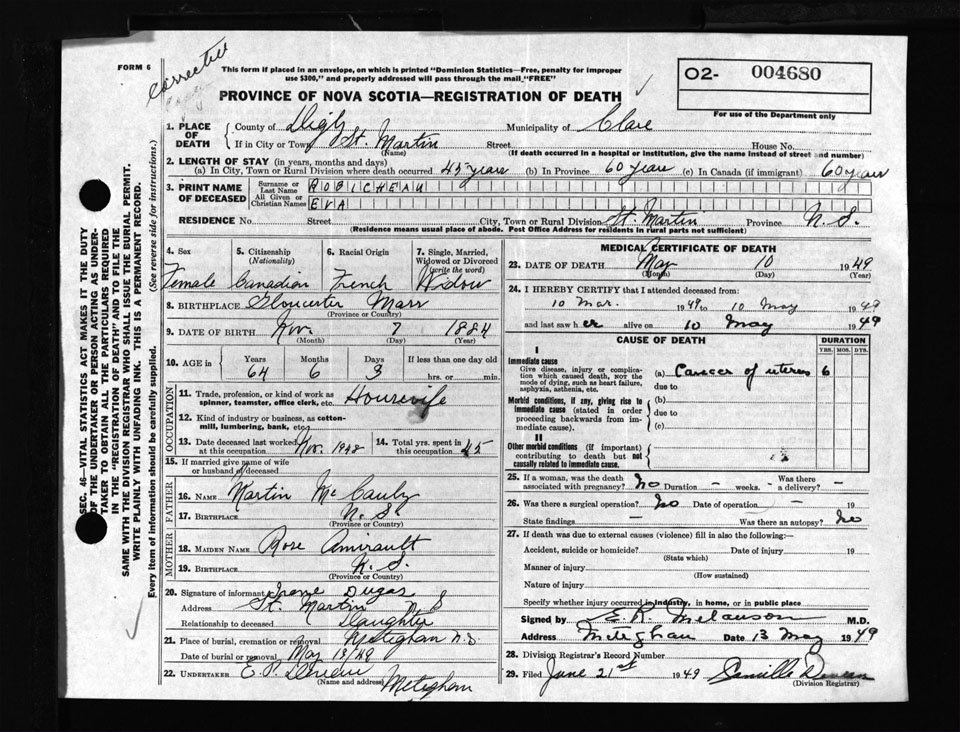 FORM 6
corrected
This form if placed in an envelope, on which is printed "Dominion Statistics—Free, penalty for improper
use $300," and properly addressed will pass through the mail "FREE"
PROVINCE OF NOVA SCOTIA—REGISTRATION OF DEATH
O2- 004680
For use of the Department only
1. PLACE OF DEATH
County of Digby Municipality of Clare
If in City or Town St. Martin Street House No.
(Name) (If death occurred in a hospital or institution, give the name instead of street and number)
2. LENGTH OF STAY (in years, months and days)
(a) In City, Town or Rural Division where death occurred 45 years (b) In Province 60 years (c) In Canada (if immigrant) 60 years
3. PRINT NAME OF DECEASED
Surname or Last Name ROBICHEAU
All Given or Christian Names EVA
RESIDENCE No Street City, Town or Rural Division St. Martin Province N. S.
(Residence means usual place of abode. Post Office Address for residents in rural parts not sufficient)
4. Sex 5. Citizenship (Nationality) 6. Racial Origin 7. Single, Married, Widowed or Divorced (write the word)
Female Canadian French Widow
8. BIRTHPLACE Gloucester Mass
(Province or Country)
9. DATE OF BIRTH Nov. 7 1884
(Month) (Day) (Year)
10. AGE in Years Months Days If less than one day old
64 6 3 hrs. or min.
OCCUPATION
11. Trade, profession, or kind of work as spinner, teamster, office clerk, etc. Housewife
12. Kind of industry or business, as cotton-mill, lumbering, bank, etc.
13. Date deceased last worked at this occupation Nov. 1948 14. Total yrs. spent in this occupation 45
15. If married give name of wife or husband of deceased
FATHER
16. NAME Martin McCauly
17. BIRTHPLACE N. S.
(Province or Country)
MOTHER
18. MAIDEN NAME Rose Amirault
19. BIRTHPLACE N. S.
(Province or Country)
20. Signature of informant Irene Dugas
Address St. Martin N S
Relationship to deceased Daughter
21. Place of burial, cremation or removal Meteghan N.S.
Date of burial or removal May 13/49
22. UNDERTAKER E. P.
(Name and address) Meteghan
MEDICAL CERTIFICATE OF DEATH
23. DATE OF DEATH May 10 1949
(Month) (Day) (Year)
24. I HEREBY CERTIFY that I attended deceased from:
10 Mar. 1949 to 10 May 1949
and last saw her alive on 10 May 1949
CAUSE OF DEATH DURATION
YRS. MOS. DYS.
I
Immediate cause
Give disease, injury or complication which caused death, not the mode of dying, such as heart failure, asphyxia, asthenia, etc.
(a) Cancer of uterus 6
due to
Morbid conditions, if any, giving rise to immediate cause (stated in order proceeding backwards from immediate cause).
(b)
due to
(c)
II
Other morbid conditions (if important) contributing to death but not causally related to immediate cause.
25. If a woman, was the death associated with pregnancy? No Duration - weeks. Was there a delivery? -
26. Was there a surgical operation? No Date of operation - 19
State findings - Was there an autopsy? No
27. If death was due to external causes (violence) fill in also the following:—
Accident, suicide or homicide? Date of injury 19
(State which)
Manner of injury
(How sustained)
Nature of injury
Specify whether injury occurred in industry, in home, or in public place
Signed by E R Melanson M.D.
Address Meteghan Date 13 May 1949
28. Division Registrar's Record Number
29. Filed June 21st 1949 Camille
(Division Registrar)
SEC. 46—VITAL STATISTICS ACT MAKES IT THE DUTY
OF THE UNDERTAKER OR PERSON ACTING AS UNDER-
TAKER TO OBTAIN ALL THE PARTICULARS REQUIRED
IN THE "REGISTRATION OF DEATH" AND TO FILE THE
SAME WITH THE DIVISION REGISTRAR WHO SHALL ISSUE THE BURIAL PERMIT.
WRITE PLAINLY WITH UNFADING INK. THIS IS A PERMANENT RECORD.
Every item of information should be carefully supplied. (See reverse side for instructions.)